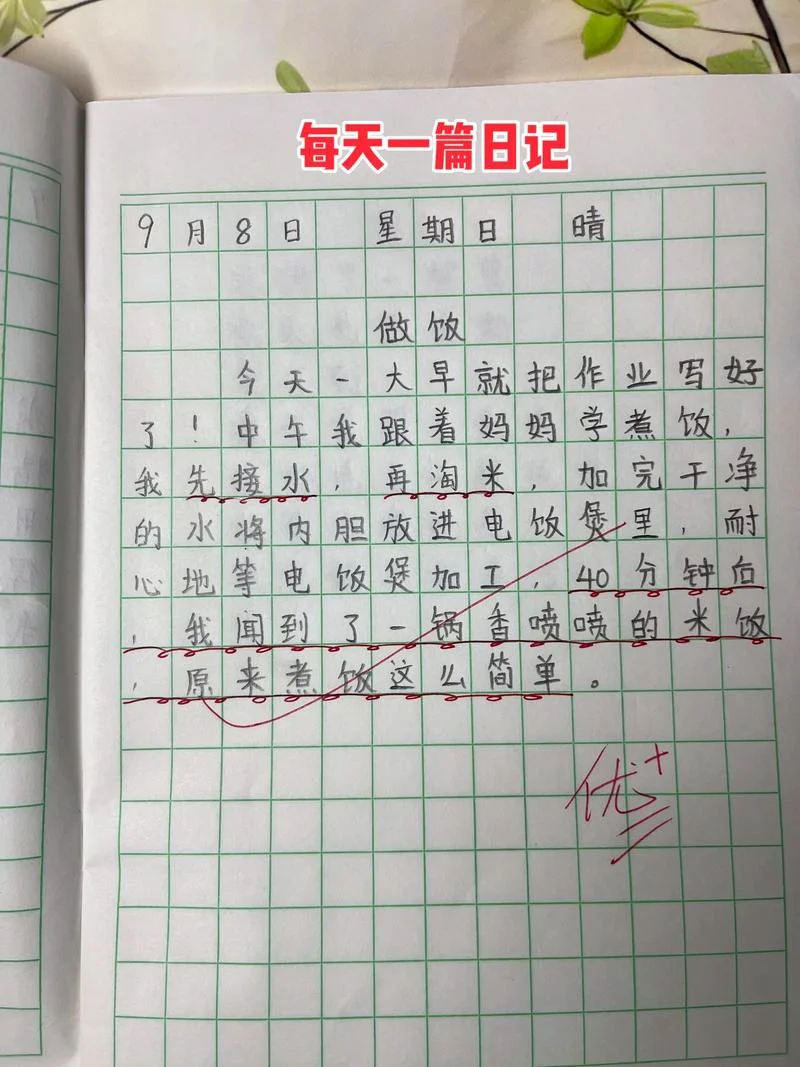 每天一篇日记
9月8日 星期日 晴
做饭
今天一大早就把作业写好
了！中午我跟着妈妈学煮饭，
我先接水，再淘米，加完干净
的水将内胆放进电饭煲里，耐
心地等电饭煲加工，40分钟后
，我闻到了一锅香喷喷的米饭
，原来煮饭这么简单。
优+